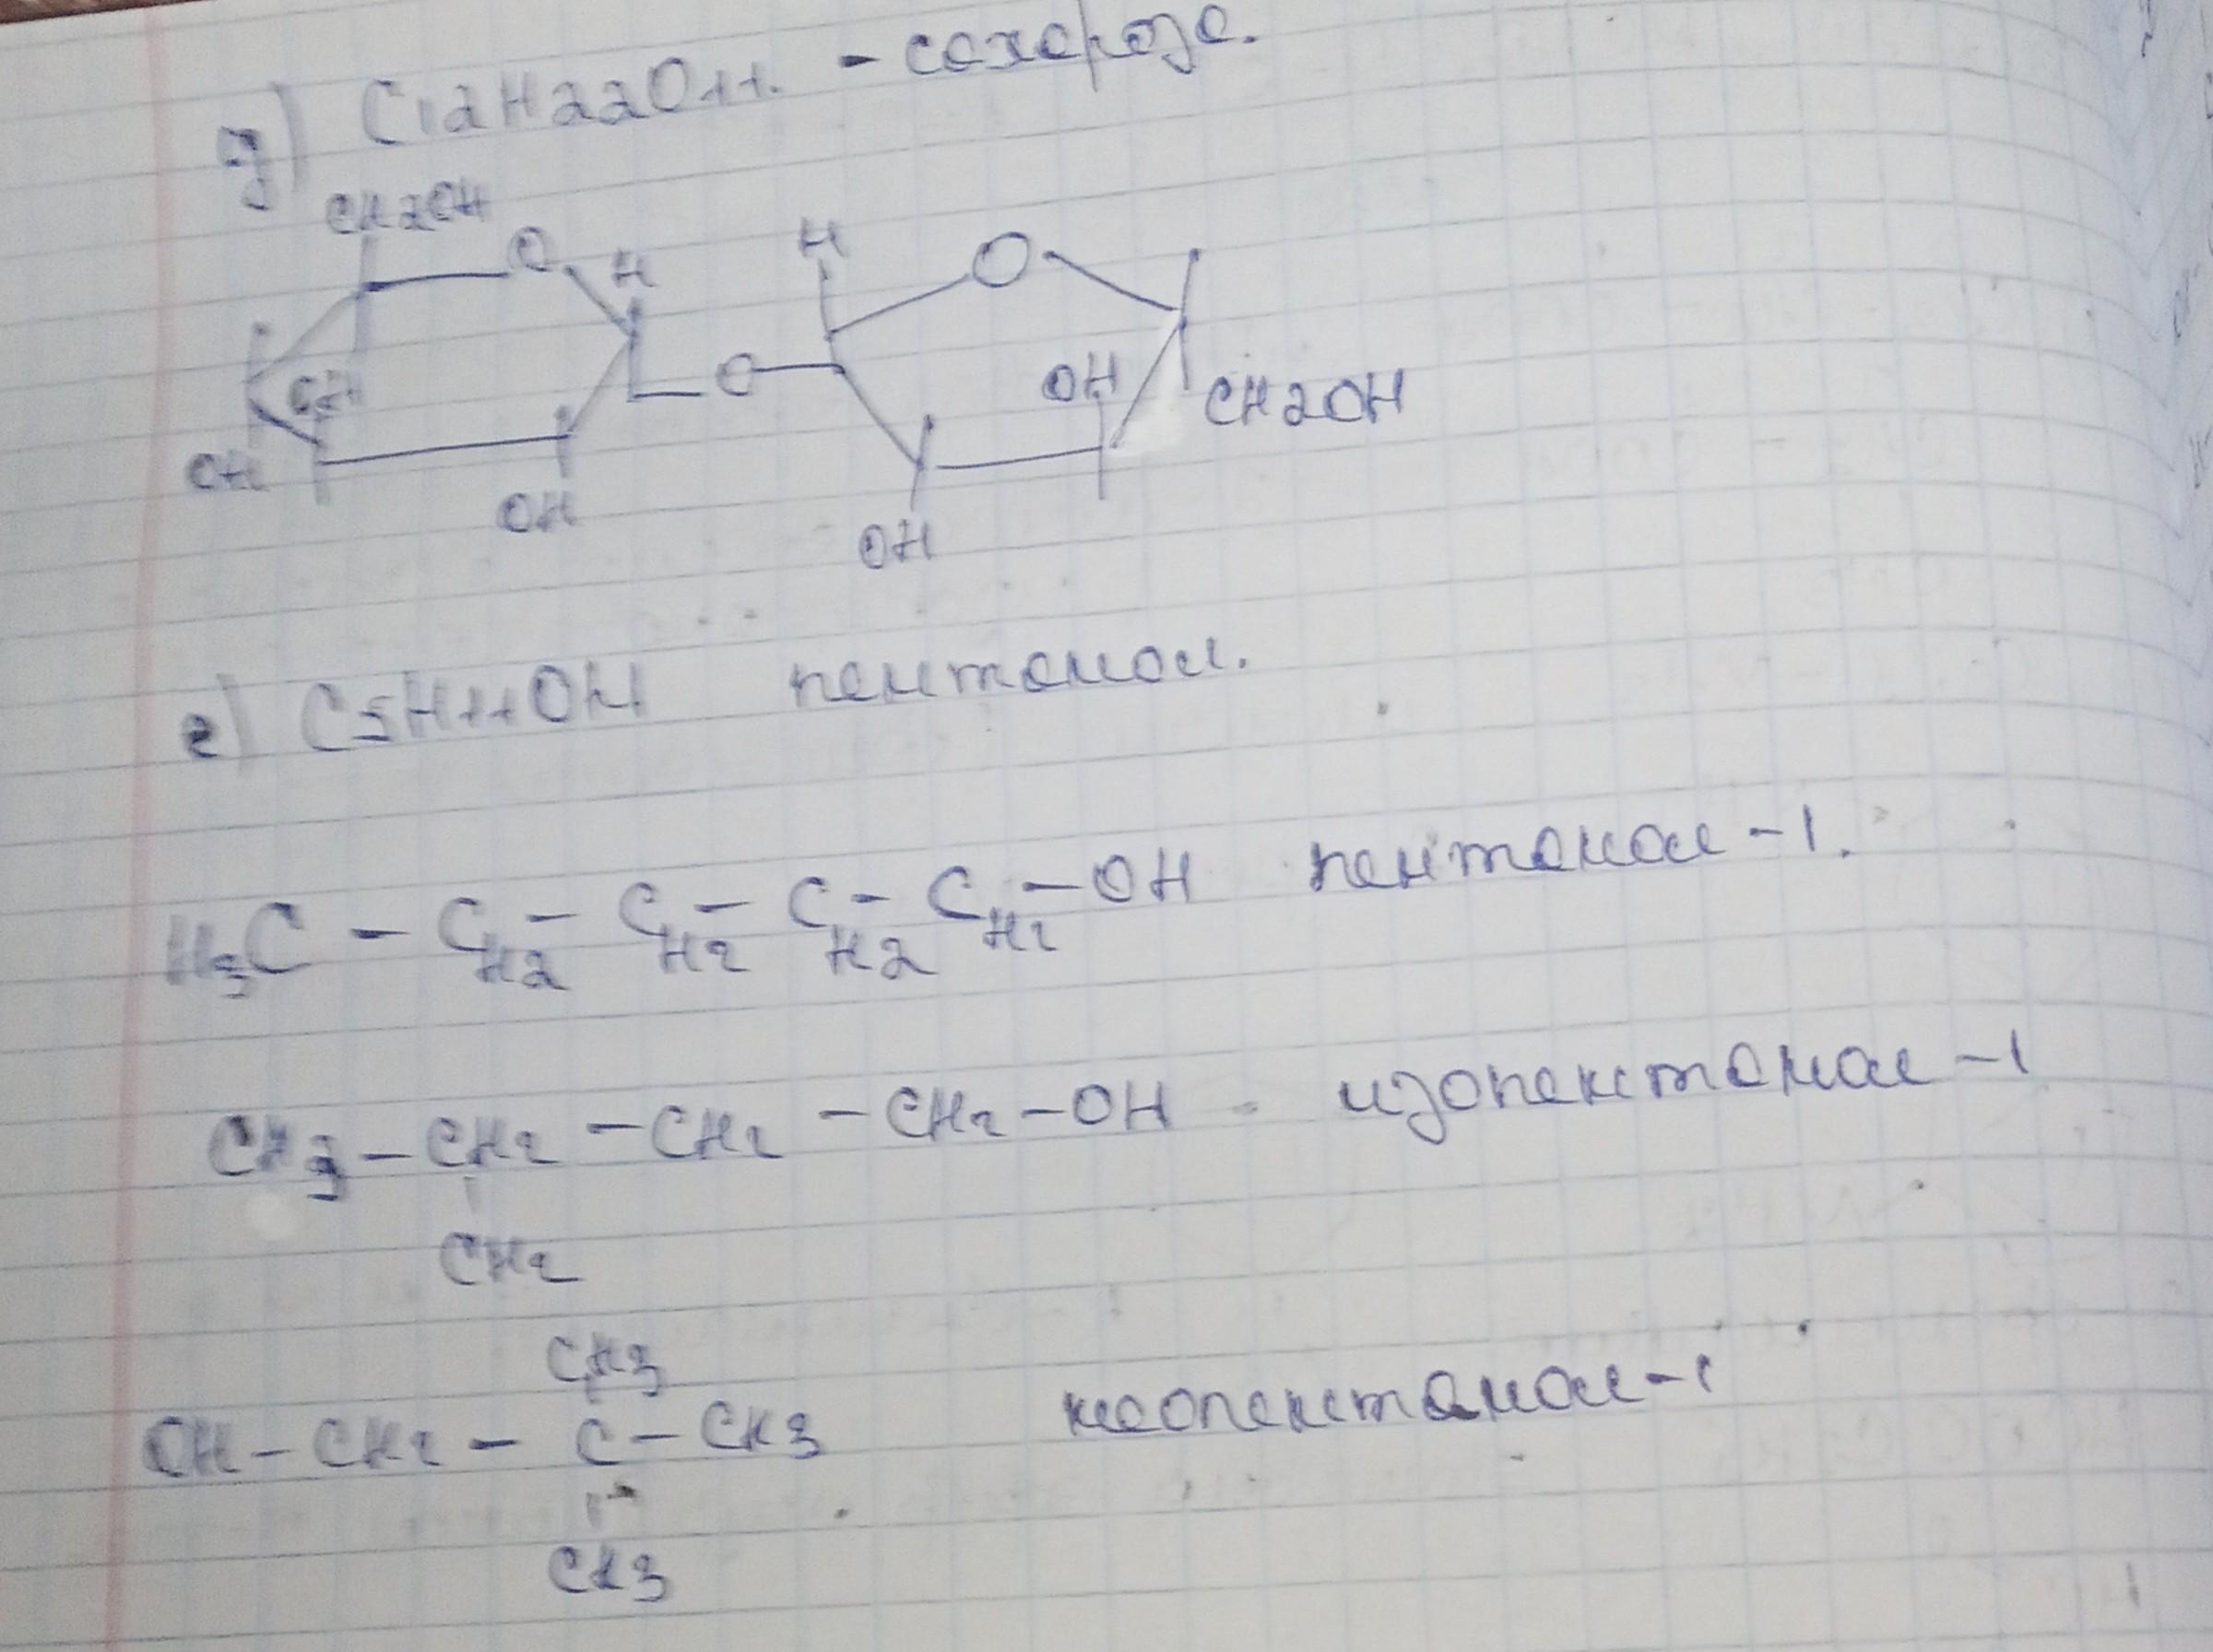 д) C12H22O11. - сахароза.
CH2OH
O H H O
OH OH CH2OH
OH OH OH
е) C5H11OH пентанол.
H3C - CH2 - CH2 - CH2 - CH2 - OH пентанол -1.
CH3 - CH2 - CH2 - CH2 - OH - изопентанол -1
CH2
CH3
OH - CH2 - C - CH3 неопентанол -1
CH3